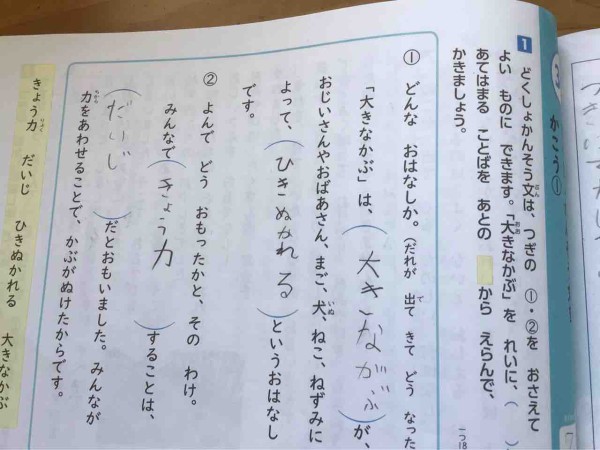 かこう①
1 どくしょかんそう文は、つぎの ①・②を おさえて
よい ものに できます。「大きなかぶ」を れいに、( )に
あてはまる ことばを あとの から えらんで、
かきましょう。
① どんな おはなしか。(だれが 出て きて どう なった
「大きなかぶ」は、(大きながぶ)が、
おじいさんやおばあさん、まご、犬、ねこ、ねずみに
よって、(ひきぬかれる)というおはなし
です。
② よんで どう おもったかと、その わけ。
みんなで(きょう力)することは、
(だいじ)だとおもいました。みんなが
力をあわせることで、かぶがぬけたからです。
きょう力 だいじ ひきぬかれる 大きなかぶ